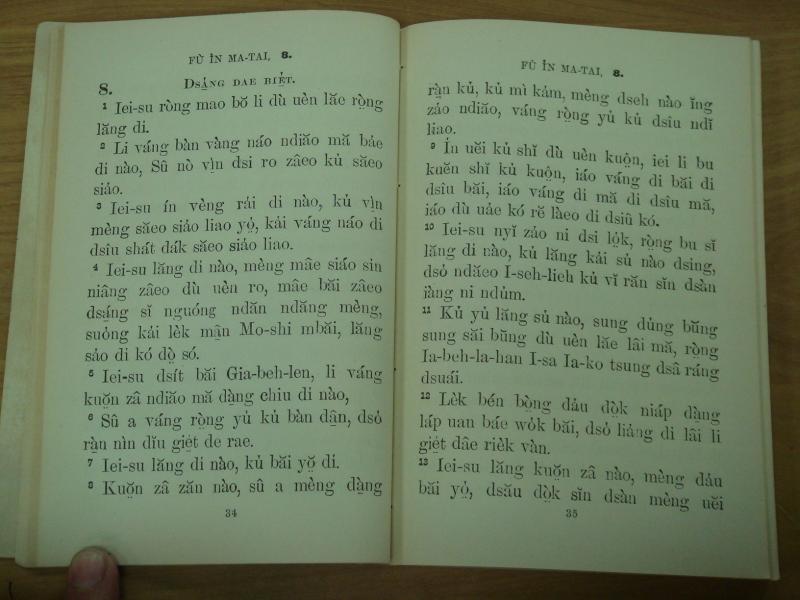 FŪ ÍN MA-TAI, 8.
8. DSẢ̤NG DAE BIẺ̤T.
1 Iei-su ròng mao bŏ li dù uèn lăe rò̤ng
lăng di.
2 Li váng bàn vàng náo ndiăo mă bảe
di nào, Sû nò vìn dsi ro zâeo kủ săeo
siảo.
3 Iei-su ín vèng rải di nào, kủ vìn
mèng săeo siảo liao yỏ̤, kải váng náo di
dsîu shát dák săeo siảo liao.
4 Iei-su lăng di nào, mèng mâe siáo sin
niâng zâeo dù uèn ro, mâe băi zâeo
dsả̤ng sĭ nguóng ndăn ndăng mèng,
suỏng kải lèk mậ̤n Mo-shi mbăi, lăng
sảo di kó dò̤ só.
5 Iei-su dsít băi Gia-beh-len, li váng
kuŏ̤n zâ ndiăo mă dà̤ng chiu di nào,
6 Sû a váng rò̤ng yủ kủ bàn dâ̤n, dsỏ
rà̤n nìn dĭu giệt de rae.
7 Iei-su lăng di nào, kủ băi yŏ̤ di.
8 Kuŏ̤n zâ zăn nào, sû a mèng dà̤ng
34
FŪ ÍN MA-TAI, 8.
rà̤n kủ, kủ mì kám, mèng dseh nào ĭng
zảo ndiăo, váng rò̤ng yủ kủ dsîu ndĭ
liao.
9 Ín uĕi kủ shĭ dù uèn kuộn, iei li bu
kuĕn shĭ kủ kuộn, iáo váng di băi di
dsîu băi, iáo váng di mă di dsîu mă,
iáo dù uảe kó rĕ làeo di dsiû kó.
10 Iei-su nyĭ zảo ni dsi lỏ̤k, rò̤ng bu sĭ
lăng di nào, kủ lăng kải sủ nào dsing,
dsỏ ndăeo I-seh-lieh kủ vĭ răn sĭn dsàn
jàng ni ndủm.
11 Kủ yủ lăng sủ nào, sung dủng bŭng
sung săi bŭng dù uèn lăe lâi mă, rò̤ng
Ia-beh-la-han I-sa Ia-ko tsung dsâ ráng
dsuái.
12 Lèk bén bò̤ng dảu dò̤k niáp dà̤ng
láp uan báe wỏk băi, dsỏ liảng di lâi li
giệt dâe rièk vàn.
13 Iei-su lăng kuŏ̤n zâ nào, mèng dảu
băi yỏ̤, dsău dò̤k sĭn dsàn mèng uĕi
35